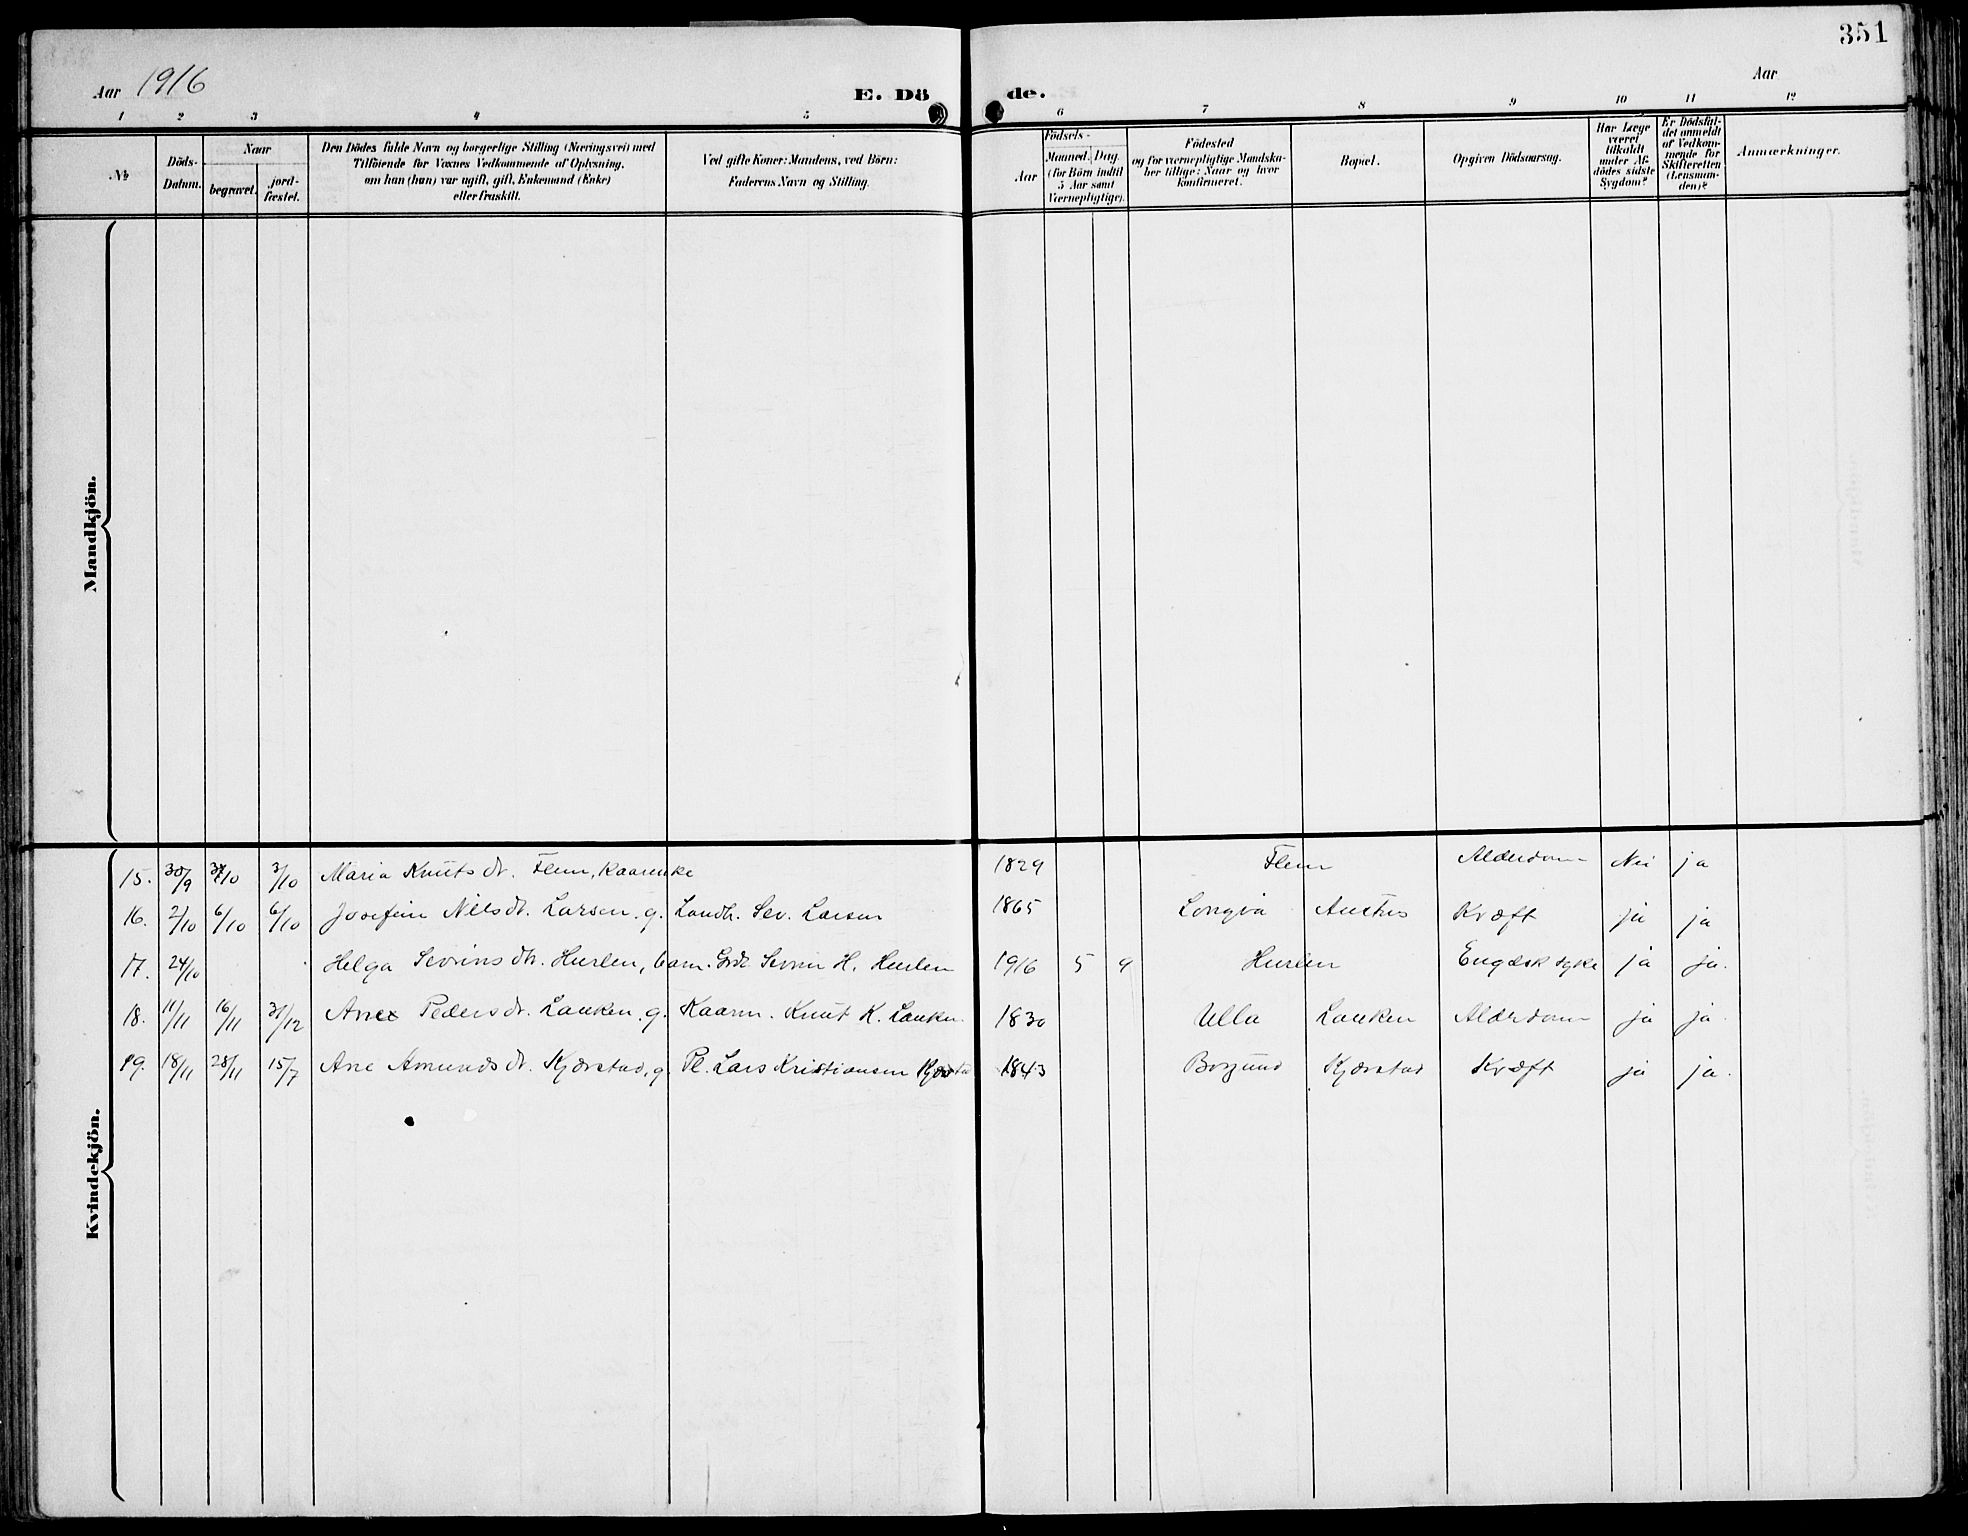 351
Aar 1916
E. Dö
de.
Aar
1 2 3 4 5 6 7 8 9 10 11 12
№
Döds-
Datum.
Naar
begravet.
jord-
fæstet.
Den Dödes fulde Navn og borgerlige Stilling (Næringsvei) med
Tilföiende for Voxnes Vedkommende af Oplysning,
om han (hun) var ugift, gift, Enkemand (Enke)
eller fraskilt.
Ved gifte Koner: Mandens, ved Börn:
Faderens Navn og Stilling.
Födsels-
Aar
Maaned. Dag.
(for Börn indtil
5 Aar samt
Værnepligtige).
Födested
og for værnepligtige Mandska-
ber tillige: Naar og hvor
konfirmeret.
Bopæl.
Opgiven Dödsaarsag.
Har Læge
været
tilkaldt
under Af-
dödes sidste
Sygdom?
Er Dödsfal-
det anmeldt
af Vedkom-
mende for
Skifteretten
(Lensman-
den)?
Anmærkninger.
Mandkjön.
Kvindekjön.
15. 30/9 3/10 3/10 Maria Knuts dr. Flem, kaarenke 1829 Flem Alderdom Nei ja
16. 2/10 6/10 6/10 Josefine Nils dr. Larsen. g. Landh. Sev. Larsen 1865 Longva Austnes Kræft ja ja
17. 24/10 Helga Sevrins dtr. Hurlen, barn. Grdr. Sevrin H. Hurlen 1916 5 9 Hurlen Engelsk syke ja ja.
18. 11/11 16/11 31/12 Ane Peders dr. Lauken. g. Kaarm. Knut K. Lauken. 1830 Ulla Lauken Alderdom ja ja.
19. 18/11 28/11 15/7 Ane Amunds dr. Kjærstad, g. Pl. Lars Kristiansen Kjærstad 1843 Borgund Kjærstad Kræft ja ja.